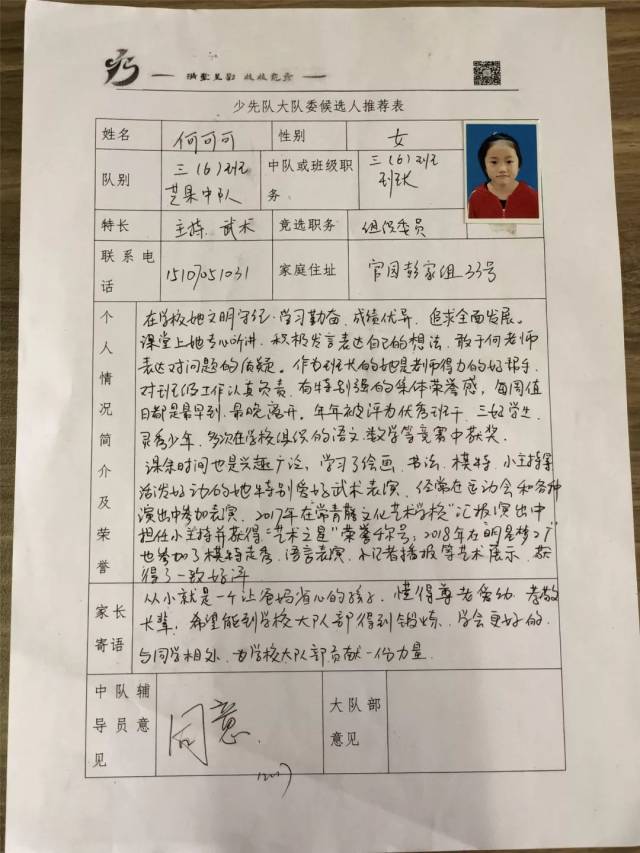 满堂呈彩 枝枝竞秀
少先队大队委候选人推荐表
姓名 何可可 性别 女
队别 三(6)班 芒果中队 中队或班级职务 三(6)班 班长
特长 主持 武术 竞选职务 组织委员
联系电话 15107051031 家庭住址 官园彭家组33号
个人情况简介及荣誉
在学校她文明守纪,学习勤奋,成绩优异,追求全面发展。
课堂上她专心听讲,积极发言表达自己的想法,敢于向老师
表达对问题的质疑。作为班长的她是老师得力的好帮手,
对班级工作认真负责,有特别强的集体荣誉感,每周值
日都是最早到、最晚离开。年年被评为优秀班干、三好学生、
灵秀少年,多次在学校组织的语文、数学等竞赛中获奖。
课余时间也是兴趣广泛,学习了绘画、书法、模特、小主持等
活泼好动的她特别爱好武术表演,经常在运动会和各种
演出中参加表演,2017年在常青藤文化艺术学校"汇报演出中
担任小主持并获得"艺术之星"荣誉称号;2018年在"明星梦工厂"
也参加了模特走秀、语言表演、小记者播报等艺术展示,获
得了一致好评
家长寄语
从小就是一个让爸妈省心的孩子,懂得尊老爱幼、孝敬
长辈,希望能到学校大队部得到锻炼,学会更好的
与同学相处,为学校大队部贡献一份力量。
中队辅导员意见 同意. 大队部意见